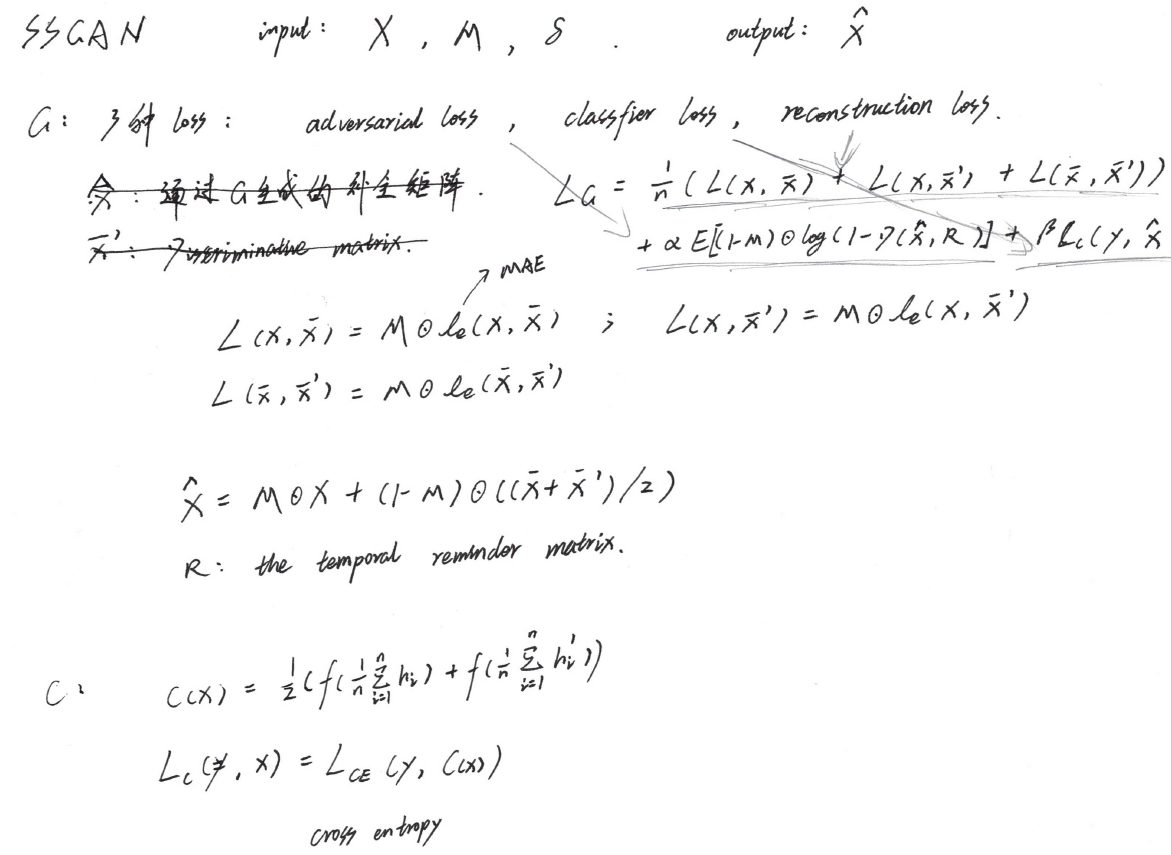 SSGAN input: X , M , δ . output: X̂
G: 3种 loss: adversarial loss , classfier loss , reconstruction loss.
X̂: 通过G生成的补全矩阵.
L_G = 1/n (L(X, X̄) + L(X, X̄') + L(X̄, X̄'))
X̄': Discriminative matrix.
+ α E[(1-M)⊙log(1-D(X̂, R)] + βL_c(y, X̂
MAE
L(X, X̄) = M⊙l_e(X, X̄) ; L(X, X̄') = M⊙l_e(X, X̄')
L(X̄, X̄') = M⊙l_e(X̄, X̄')
X̂ = M⊙X + (1-M)⊙((X̄+X̄')/2)
R: the temporal reminder matrix.
C: C(X) = 1/2(f(1/n Σ_{i=1}^n h_i) + f(1/n Σ_{i=1}^n h_i'))
L_c(y, X) = L_CE (y, C(X))
cross entropy